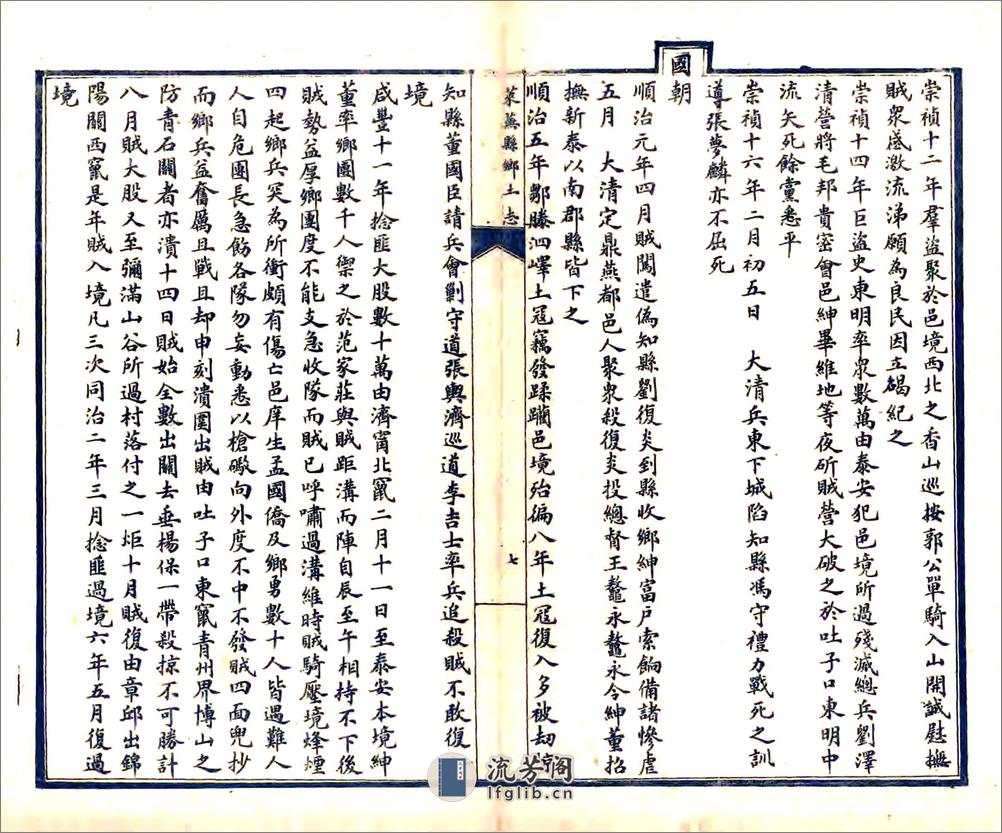 崇禎十二年羣盜聚於邑境西北之香山巡按郭公單騎入山開誠慰撫
賊衆感激流涕願為良民因立碣紀之
崇禎十四年巨盜史東明率衆數萬由泰安犯邑境所過殘滅總兵劉澤
清營將毛邦貴密會邑紳畢維地等夜斫賊營大破之於吐子口東明中
流矢死餘黨悉平
崇禎十六年二月初五日 大清兵東下城陷知縣馮守禮力戰死之訓
導張夢麟亦不屈死
國
朝
順治元年四月賊闖遣偽知縣劉復炎到縣收鄉紳富戶索餉備諸慘虐
五月 大清定鼎燕都邑人聚衆殺復炎投總督王鰲永鰲永令紳董招
撫新泰以南郡縣皆下之
順治五年鄒滕泗嶧土冠竊發蹂躪邑境殆徧八年土冠復入多被劫
萊蕪縣鄉土志
七
知縣董國臣請兵會剿守道張輿濟巡道李吉士率兵追殺賊不敢復
境
咸豐十一年捻匪大股數十萬由濟甯北竄二月十一日至泰安本境紳
董率鄉團數千人禦之於范家莊與賊距溝而陣自辰至午相持不下後
賊勢益厚鄉團度不能支急收隊而賊已呼嘯過溝維時賊騎壓境烽煙
四起鄉兵突為所衝頗有傷亡邑庠生孟國僑及鄉勇數十人皆遇難人
人自危團長急飭各隊勿妄動悉以槍礮向外度不中不發賊四面兜抄
而鄉兵益奮厲且戰且却申刻潰圍出賊由吐子口東竄青州界博山之
防青石關者亦潰十四日賊始全數出關去垂楊保一帶殺掠不可勝計
八月賊大股又至彌滿山谷所過村落付之一炬十月賊復由章邱出錦
陽關西竄是年賊入境凡三次同治二年三月捻匪過境六年五月復過
境
流芳閣
lfglib.cn